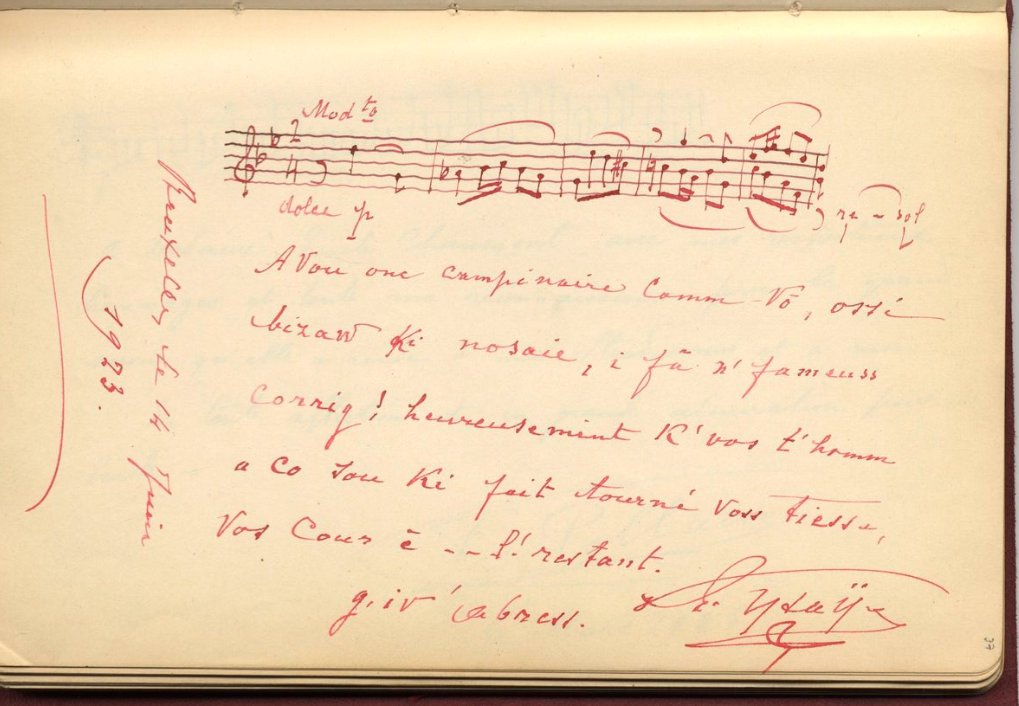 Modto
dolce p
re - sol
Avou onc campinaire comm-vô, ossi
bizaw Ki nosaie, i fâ n' fameuss
corrig! heureusemint K' vos t'homm
a co sou Ki fait tourné voss tiesse,
vos cour è -- l' restant.
g. iv' abress.
Ysaÿe
Bruxelles le 14 Juin
1923.